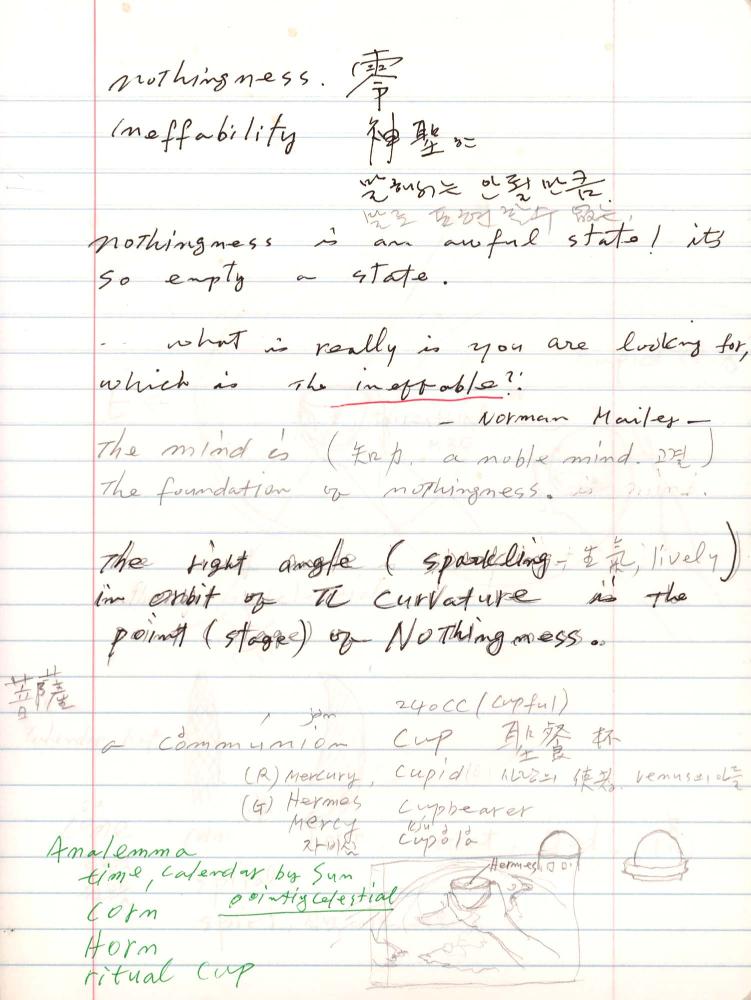 nothingness. 零
ineffability 神聖
말로 표현할 수 없는,
nothingness is an awful state! its
so empty a state.
.. what is really is you are looking for,
which is the ineffable?!
- Norman Mailer -
The mind is (知力. a noble mind. 고결)
The foundation of nothingness.
The right angle (sparkling - 生氣, lively)
in orbit of π curvature is the
point (stage) of Nothingness.
菩薩
240cc (cupful)
a communion cup 聖餐杯
(R) Mercury, Cupid 사랑의 使者. venus의 아들
(G) Hermes Cupbearer
Mercy Cupola
자비심
Analemma
time, Calendar by Sun
pointig celestial
Corn
Horn
ritual Cup
Hermes